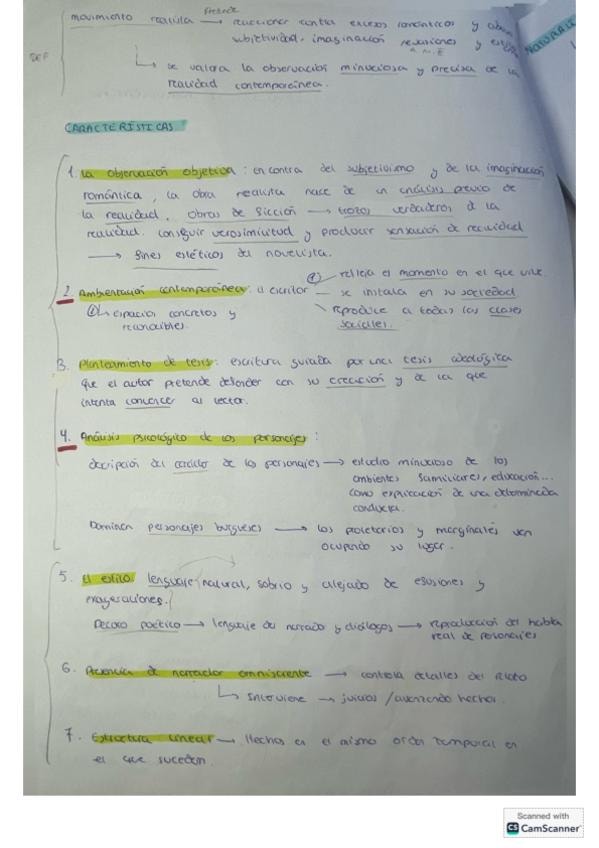 Pretende
movimiento realista → reaccionar contra excesos románticos y
subjetividad, imaginación y
DEF
↳ se valora la observación minuciosa y precisa de la
realidad contemporánea.
CARACTERÍSTICAS
1. La observación objetiva: en contra del subjetivismo y de la imaginación
romántica, la obra realista nace de un análisis previo de
la realidad. Obras de ficción → trozos verdaderos d la
realidad. Conseguir verosimilitud y producir sensación de realidad
→ fines estéticos del novelista.
① refleja el momento en el que vive.
2. Ambientación contemporánea: el escritor — se instala en su sociedad
②↳ espacios concretos y \ reproduce a todas las clases
reconocibles. sociales.
3. Planteamiento de tesis: escritura guiada por una tesis ideológica
que el autor pretende defender con su creación y de la que
intenta convencer al lector.
4. Análisis psicológico de los personajes:
descripción del carácter de los personajes → estudio minucioso de los
ambientes familiares, educación...
como explicación de una determinada
conducta.
Dominan personajes burgueses → los proletarios y marginales van
ocupando su lugar.
5. El estilo: lenguaje natural, sobrio y alejado de efusiones y
exageraciones.
Decoro poético → lenguaje de narrador y diálogos → reproducción del habla
real de personajes
6. Presencia de narrador omnisciente → controla detalles del relato
↳ Interviene → juicios / avanzando hechos.
7. Estructura lineal → Hechos en el mismo orden temporal en
el que suceden.
Scanned with
CS CamScanner